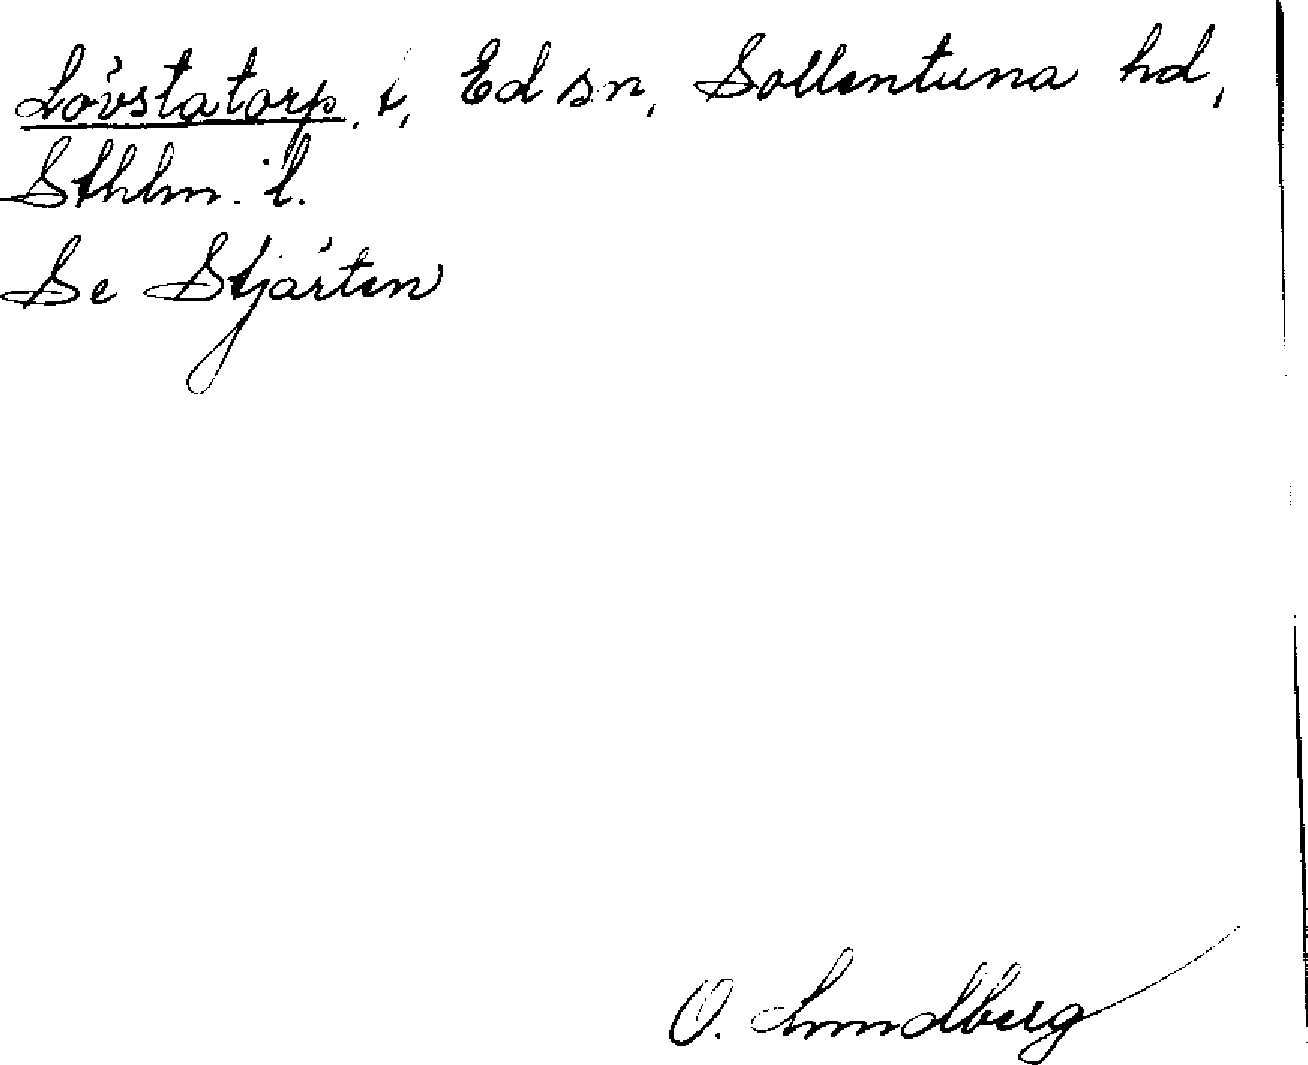 Lövstatorp, t, Ed sn, Sollentuna hd,
Sthlm. l.
Se Stjärten
O. Lundberg